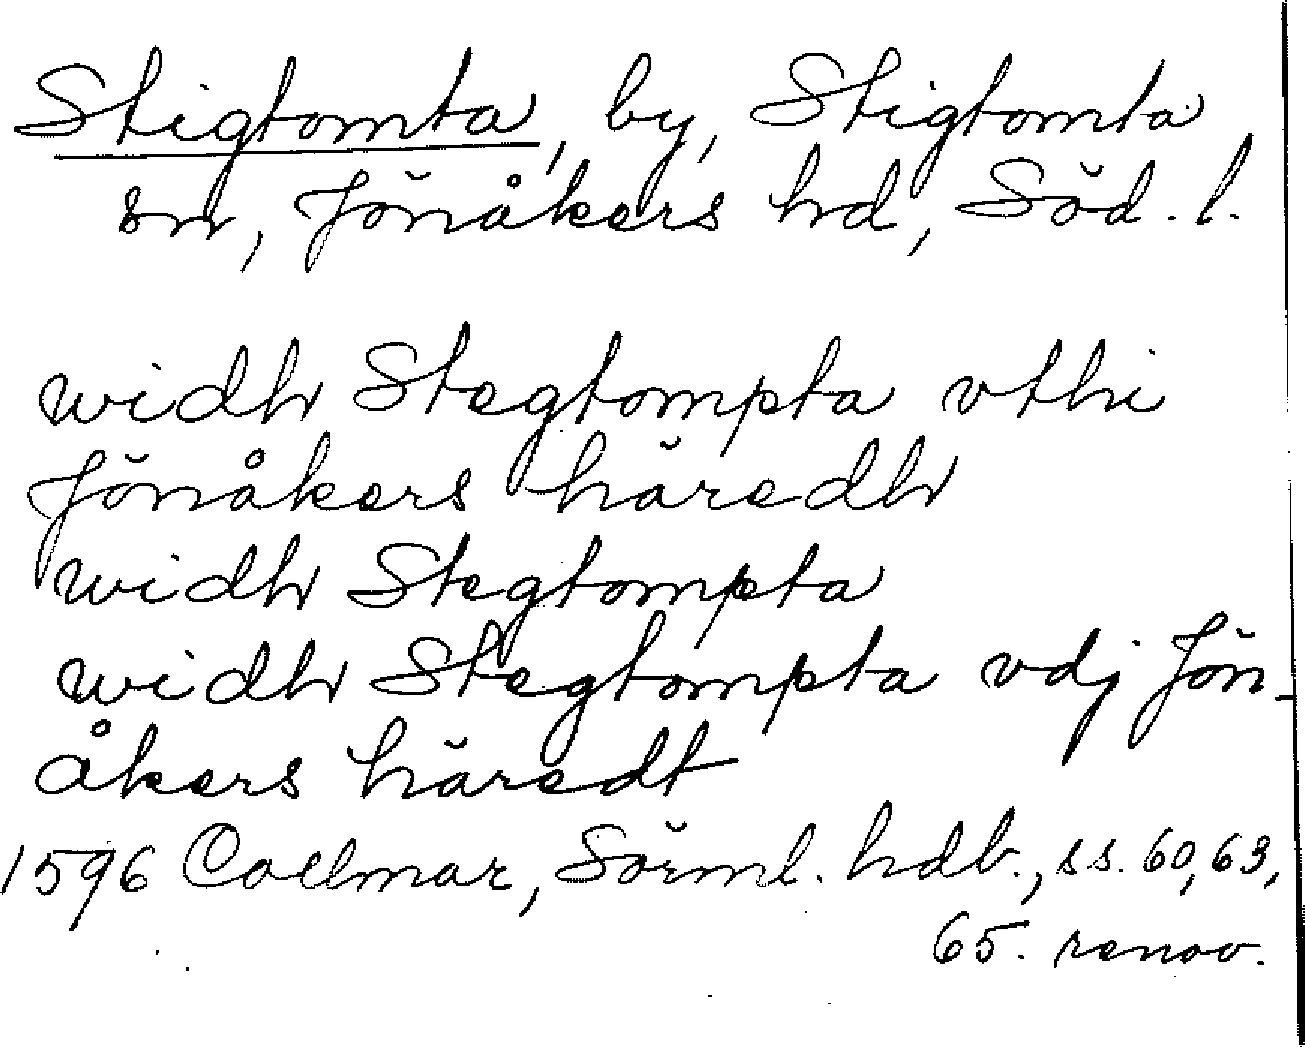 Stigtomta, by, Stigtomta
sn, Jönåkers hd, Söd. l.
widh Stegtompta vthi
Jönåkers häredh
widh Stegtompta
widh Stegtompta vdj Jön-
åkers häredt
1596 Collmar, Sörml. hdb., ss. 60, 63,
65. renov.